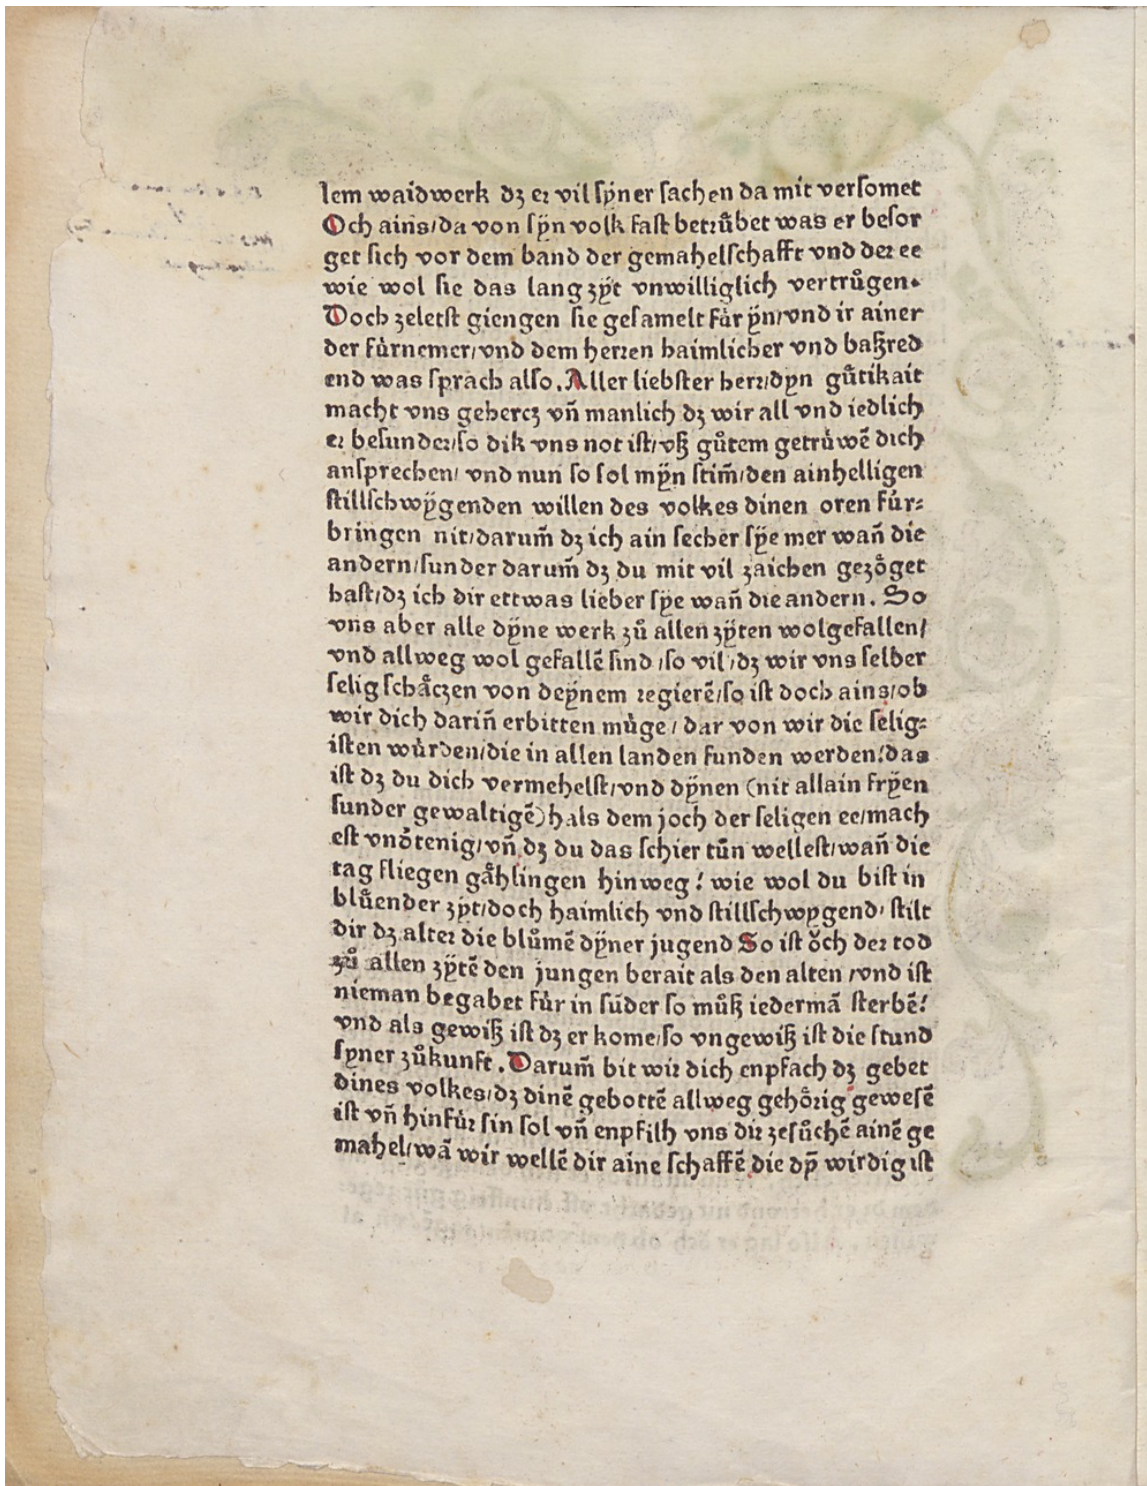 lem waidwerk dʒ er vil sÿner sachen da mit versomet
Och ains/da von sÿn volk fast betrůbet was er besor
get sich vor dem band der gemahelschafft vnd der ee
wie wol sie das lang zÿt vnwilliglich vertrůgen.
Doch zeletst giengen sie gesamelt fár ÿn/vnd ir ainer
der fúrnemer/vnd dem herren haimlicher vnd baßred
end was sprach also. Aller liebster herr/dyn gůtikait
macht vns gehercz vn̄ manlich dʒ wir all vnd iedlich
er besunder/so dik vns not ist/vß gůtem getrúwē dich
ansprechen/ vnd nun so sol mÿn stim̄/den ainhelligen
stillschwÿgenden willen des volkes dinen oren fúr⸗
bringen nit/darum̄ dʒ ich ain secher sÿe mer wan̄ die
andern/sunder darum̄ dʒ du mit vil zaichen gezöget
hast/dʒ ich dir ettwas lieber sÿe wan̄ die andern. So
vns aber alle dÿne werk zů allen zÿten wolgefallen/
vnd allweg wol gefallē sind /so vil/dʒ wir vns selber
selig schåczen von deÿnem regierē/so ist doch ains/ob
wir dich darin̄ erbitten múge/ dar von wir die selig⸗
isten wúrden/die in allen landen funden werden!das
ist dʒ du dich vermehelst/vnd dÿnen (nit allain frÿen
sunder gewaltigē)hals dem joch der seligen ee/mach
est vndtenig/vn̄ dʒ du das schier tůn wellest/wan̄ die
tag fliegen gåhlingen hinweg! wie wol du bist in
blůender zyt/doch haimlich vnd stillschwygend/ stilt
dir dʒ alter die blůmē dÿner jugend So ist öch der tod
zů allen zÿtē den jungen berait als den alten /vnd ist
nieman begabet fúr in súder so můß iedermā sterbē!
vnd als gewiß ist dʒ er kome/so vngewiß ist die stund
syner zůkunft. Darum̄ bit wir dich enpfach dʒ gebet
dines volkes/dʒ dinē gebottē allweg gehörig gewesē
ist vn̄ hinfúr sin sol vn̄ enpfilh vns dir zesůchē ainē ge
mahel/wā wir wellē dir aine schaffē die dÿ wirdig ist